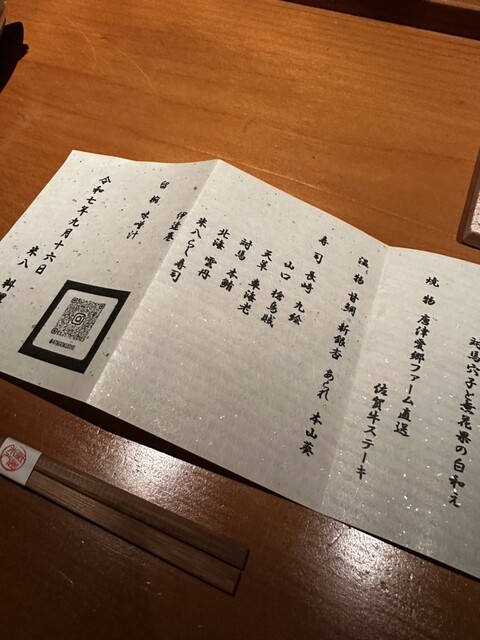 対馬穴子と無花果の白和え
焼物 唐津愛郷ファーム直送
佐賀牛ステーキ
温物 甘鯛 新銀杏 あられ 本山葵
寿司 長崎 九絵
山口 槍烏賊
天草 車海老
対馬 本鮪
北海 雲丹
米八ちらし寿司
伊達巻
留椀 味噌汁
令和七年九月十六日
米八